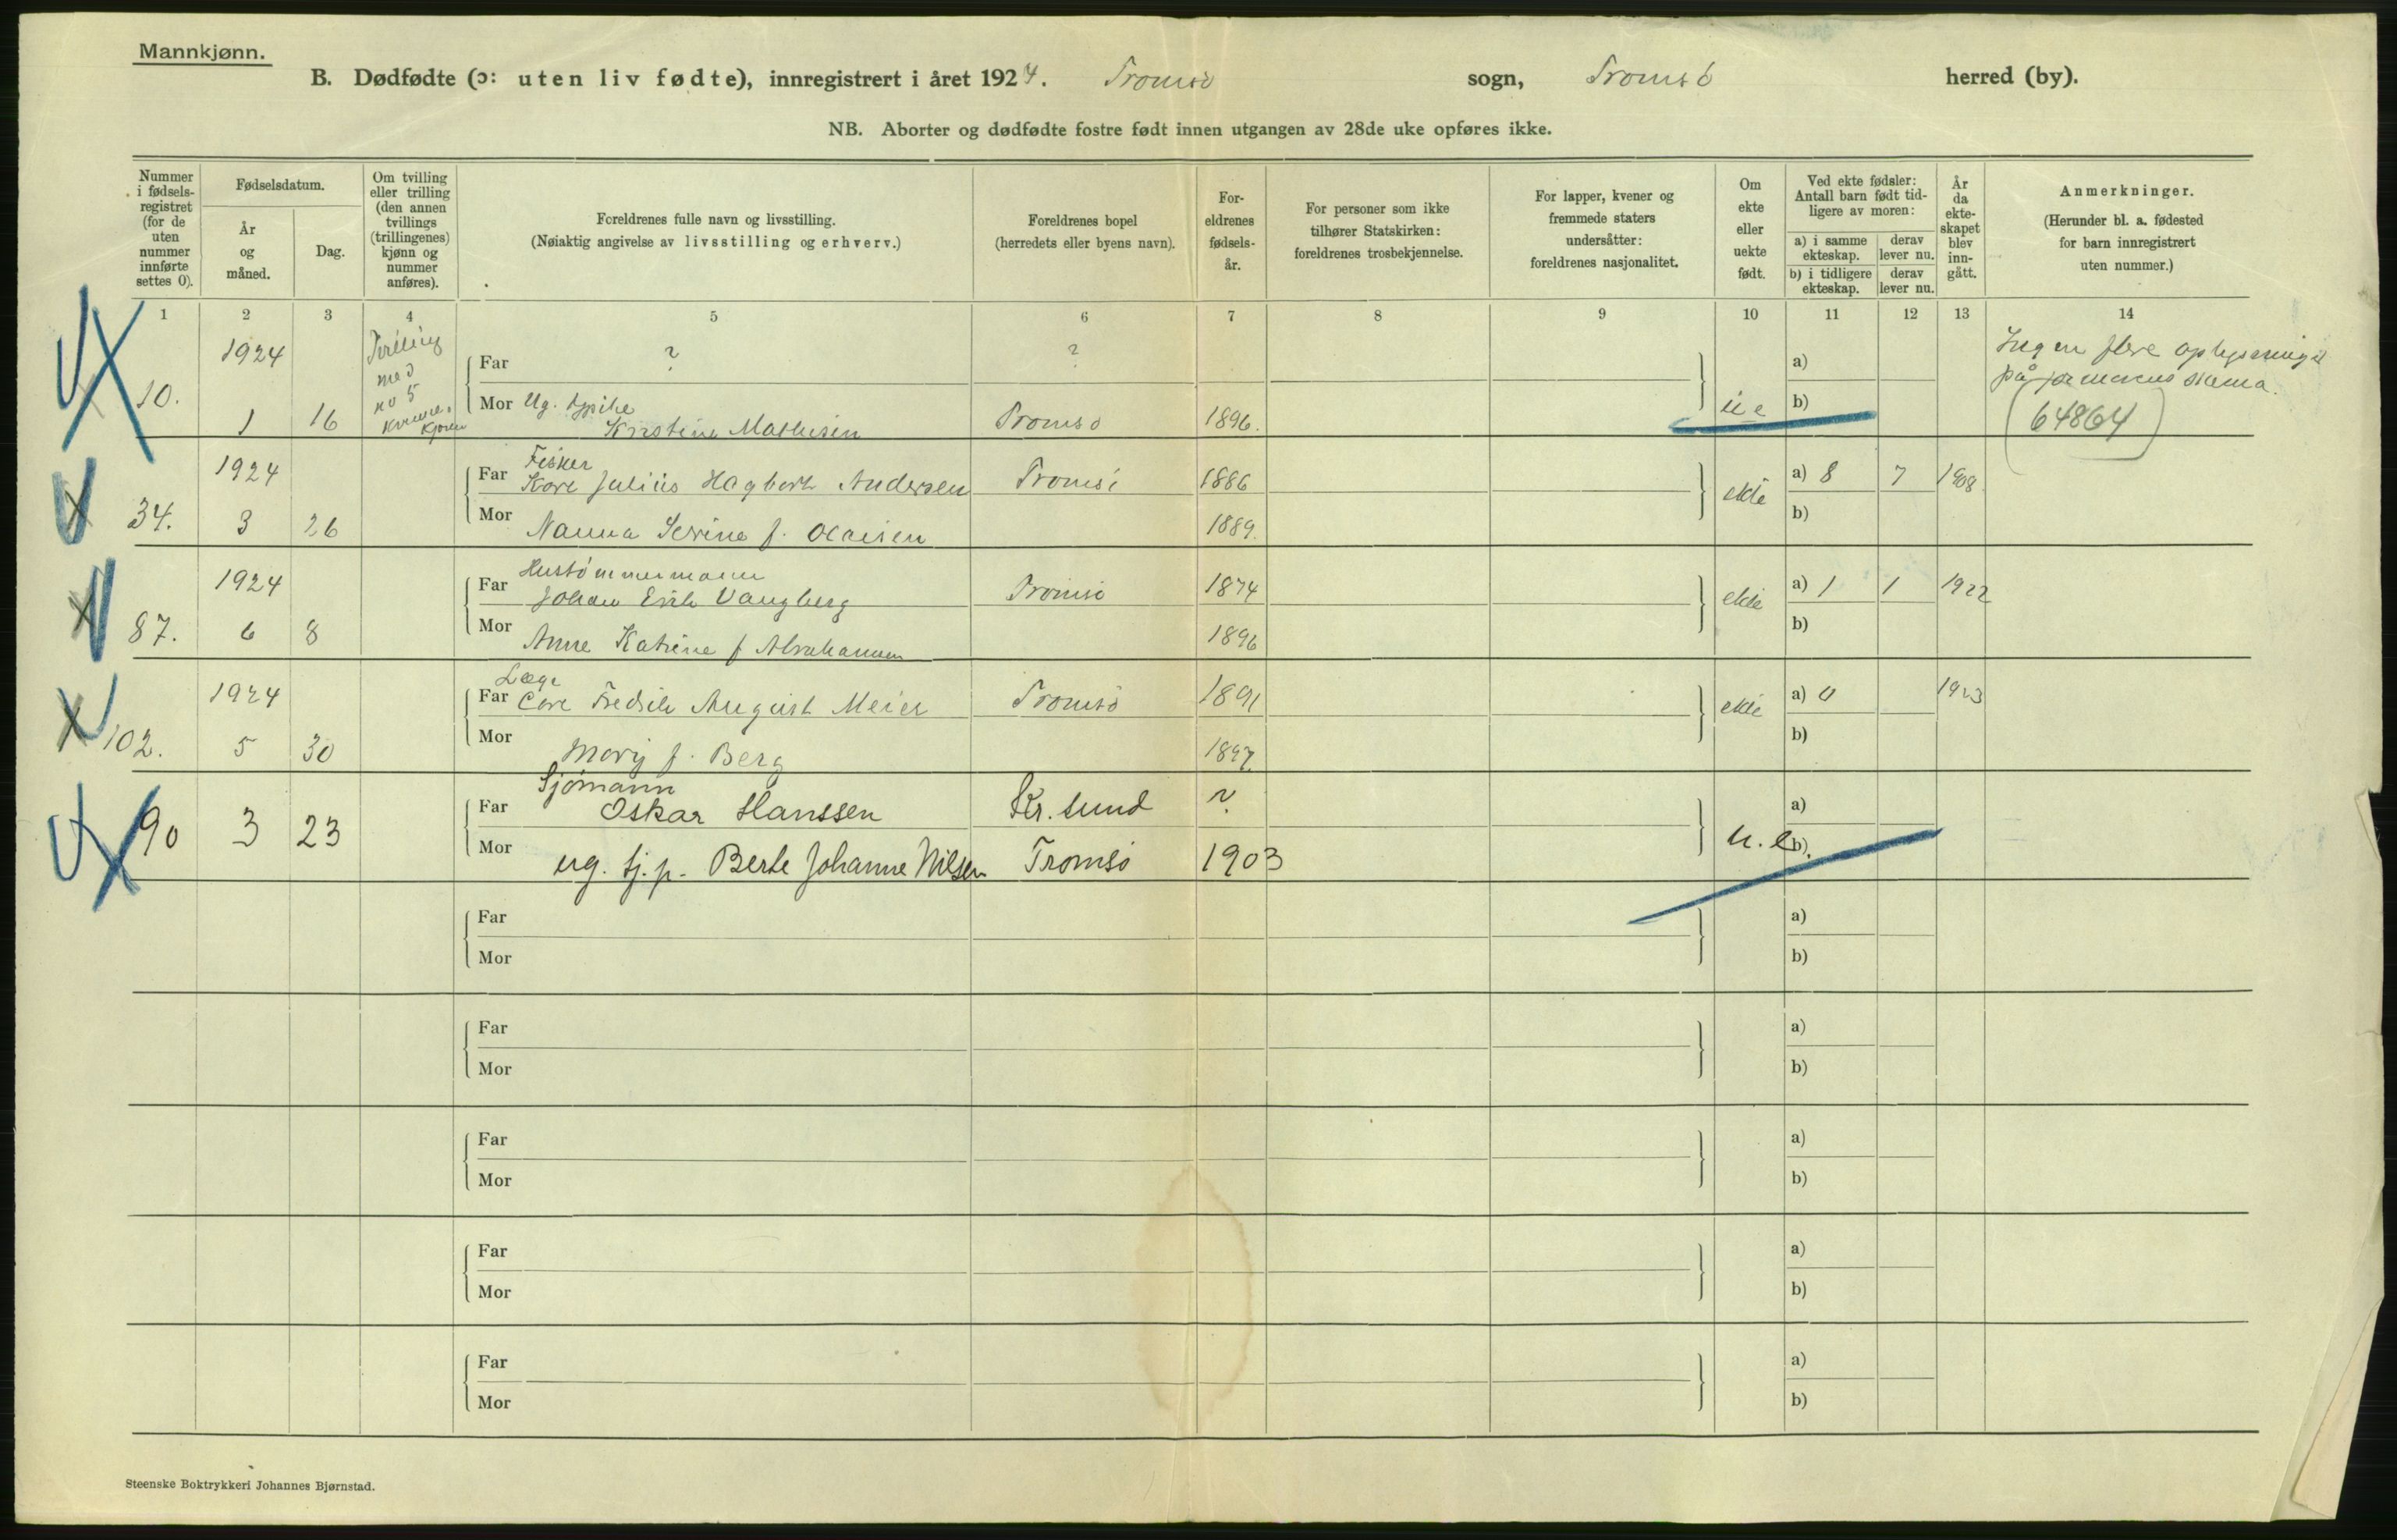 Mannkjønn.
B. Dødfødte (ɔ: uten liv fødte), innregistrert i året 1924. Tromsø sogn, Tromsø herred (by).
NB. Aborter og dødfødte fostre født innen utgangen av 28de uke opføres ikke.
Nummer i fødsels- registret (for de uten nummer innførte settes 0).
Fødselsdatum.
År og måned.
Dag.
Om tvilling eller trilling (den annen tvillings (trillingenes) kjønn og nummer anføres).
Foreldrenes fulle navn og livsstilling.
(Nøiaktig angivelse av livsstilling og erhverv.)
Foreldrenes bopel
(herredets eller byens navn).
For- eldrenes fødsels- år.
For personer som ikke tilhører Statskirken: foreldrenes trosbekjennelse.
For lapper, kvener og fremmede staters undersåtter: foreldrenes nasjonalitet.
Om ekte eller uekte født.
Ved ekte fødsler: Antall barn født tid- ligere av moren:
a) i samme ekteskap.
derav lever nu.
b) i tidligere ekteskap.
derav lever nu.
År da ekte- skapet blev inn- gått.
Anmerkninger.
(Herunder bl. a. fødested for barn innregistrert uten nummer.)
1 2 3 4 5 6 7 8 9 10 11 12 13 14
1924 Tvilling med no 5
Far ? ? a)
Ingen flere
på skema.
10. 1 16 Mor Ug. Kristine Mathisen Tromsø 1896. u e b) (64864)
1924 Fisker
Far Kare Julius Hagbart Andersen Tromsø 1886 ekte a) 8 7 1908
34. 3 26 Mor Nanna Serine f. Olaisen 1889. b)
1924 Hustømmermann
Far Johan Erik Vangberg Tromsø 1874 ekte a) 1 1 1922
87. 6 8 Mor Anne Katrine f Abrahamsen 1896 b)
1924 Læge
Far Carl Fredrik August Meier Tromsø 1891 ekte a) 0 1923
102. 5 30 Mor Mary f. Berg 1897. b)
Sjømann
Far Oskar Hanssen Kr. sund ? a)
90 3 23 Mor ug. tj. p. Berte Johanne Nilsen Tromsø 1903 u. e. b)
Far a)
Mor b)
Far a)
Mor b)
Far a)
Mor b)
Far a)
Mor b)
Far a)
Mor b)
Steenske Boktrykkeri Johannes Bjørnstad.